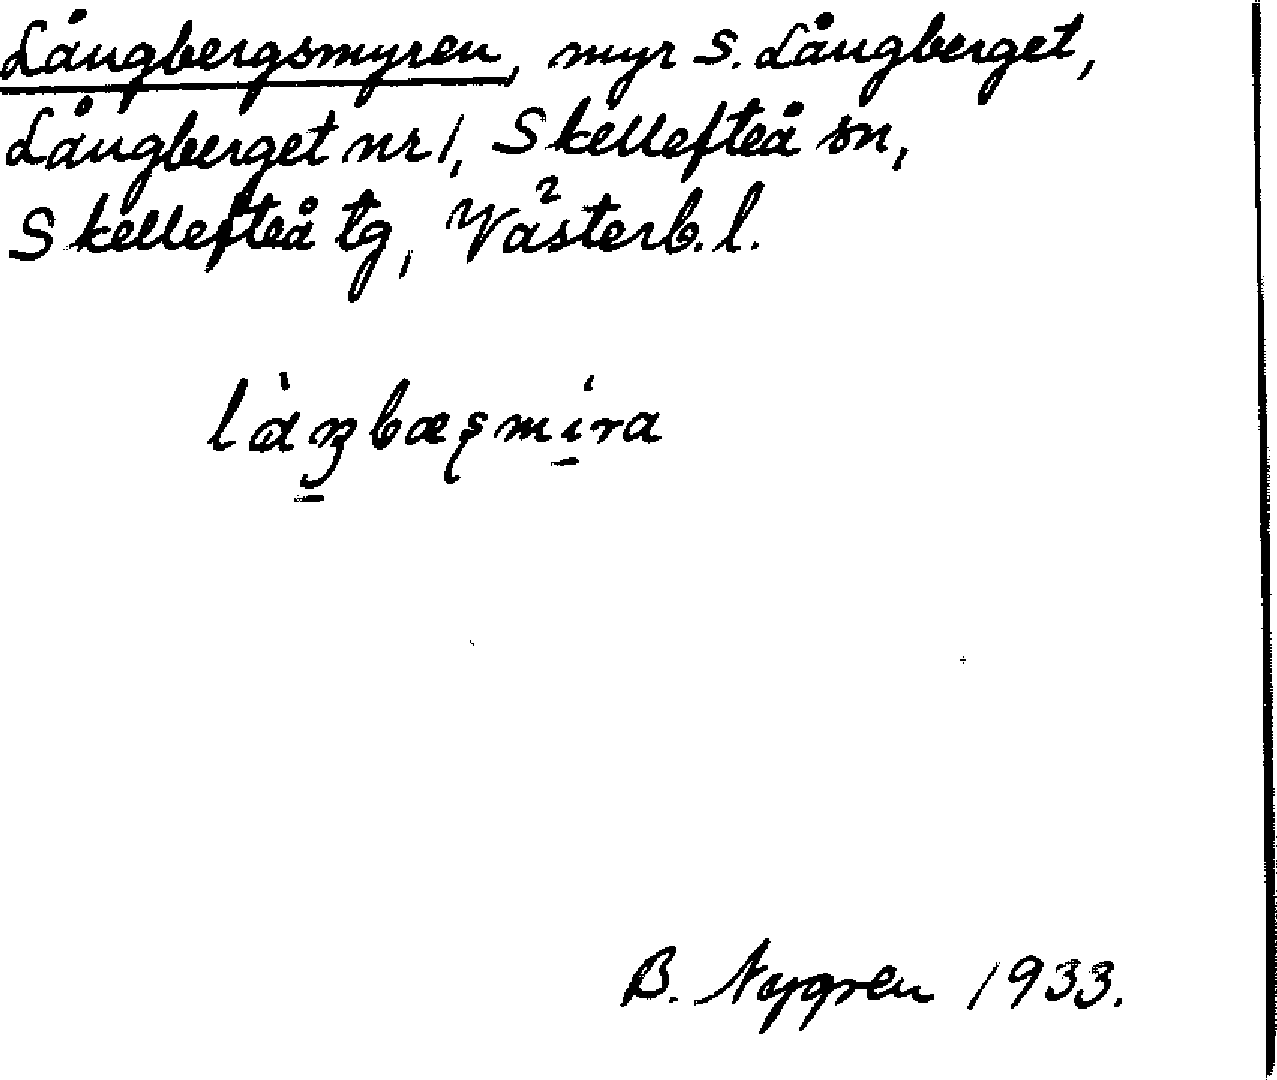 Långbergsmyren, myr S. Långberget,
Långberget nr 1, Skellefteå sn,
Skellefteå tg, Västerb. l.
làŋbæşmìra
B. Nygren 1933.